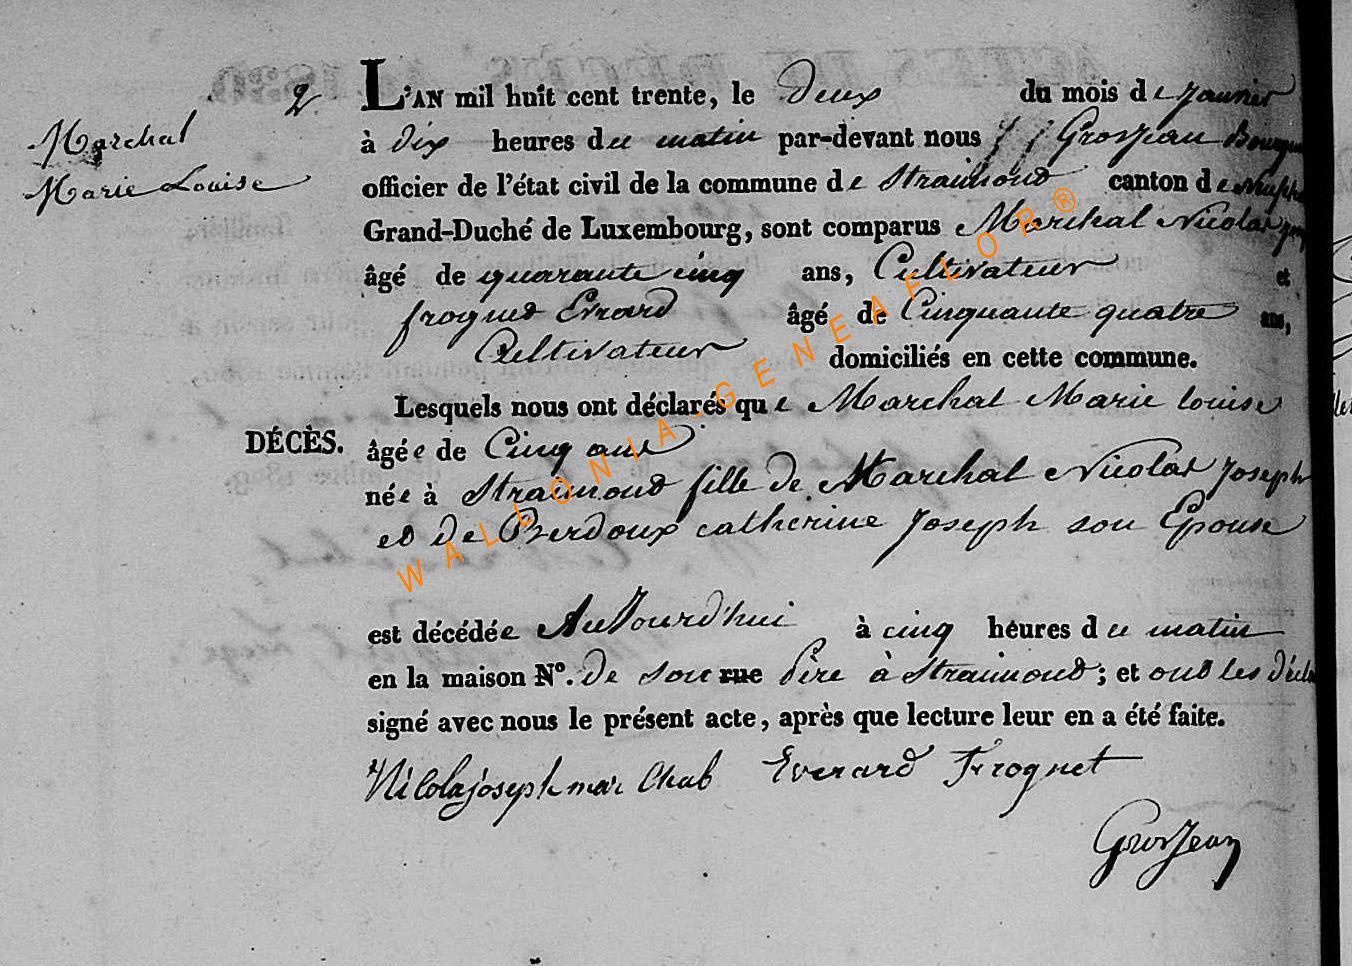 2
Marchal
Marie Louise
L'AN mil huit cent trente, le Deux du mois de Janvier
à Dix heures du matin par-devant nous J J Grosjean
officier de l'état civil de la commune de Straimond canton de
Grand-Duché de Luxembourg, sont comparus Marchal Nicolas
âgé de quarante cinq ans, Cultivateur et
froguet Evrard âgé de Cinquante quatre ans,
Cultivateur domiciliés en cette commune.
Lesquels nous ont déclarés que Marchal Marie louise
DÉCÈS.
âgée de Cinq ans
née à Straimond fille de Marchal Nicolas Joseph
et de Berdoux catherine Joseph son Epouse
est décédée AuJourd'hui à cinq heures du matin
en la maison No. De son rue Père à Straimond; et ont les
signé avec nous le présent acte, après que lecture leur en a été faite.
Nicolasjoseph mar Chal Everard Froguet
GrosJean
WALLONIA-GENEAFLOR®